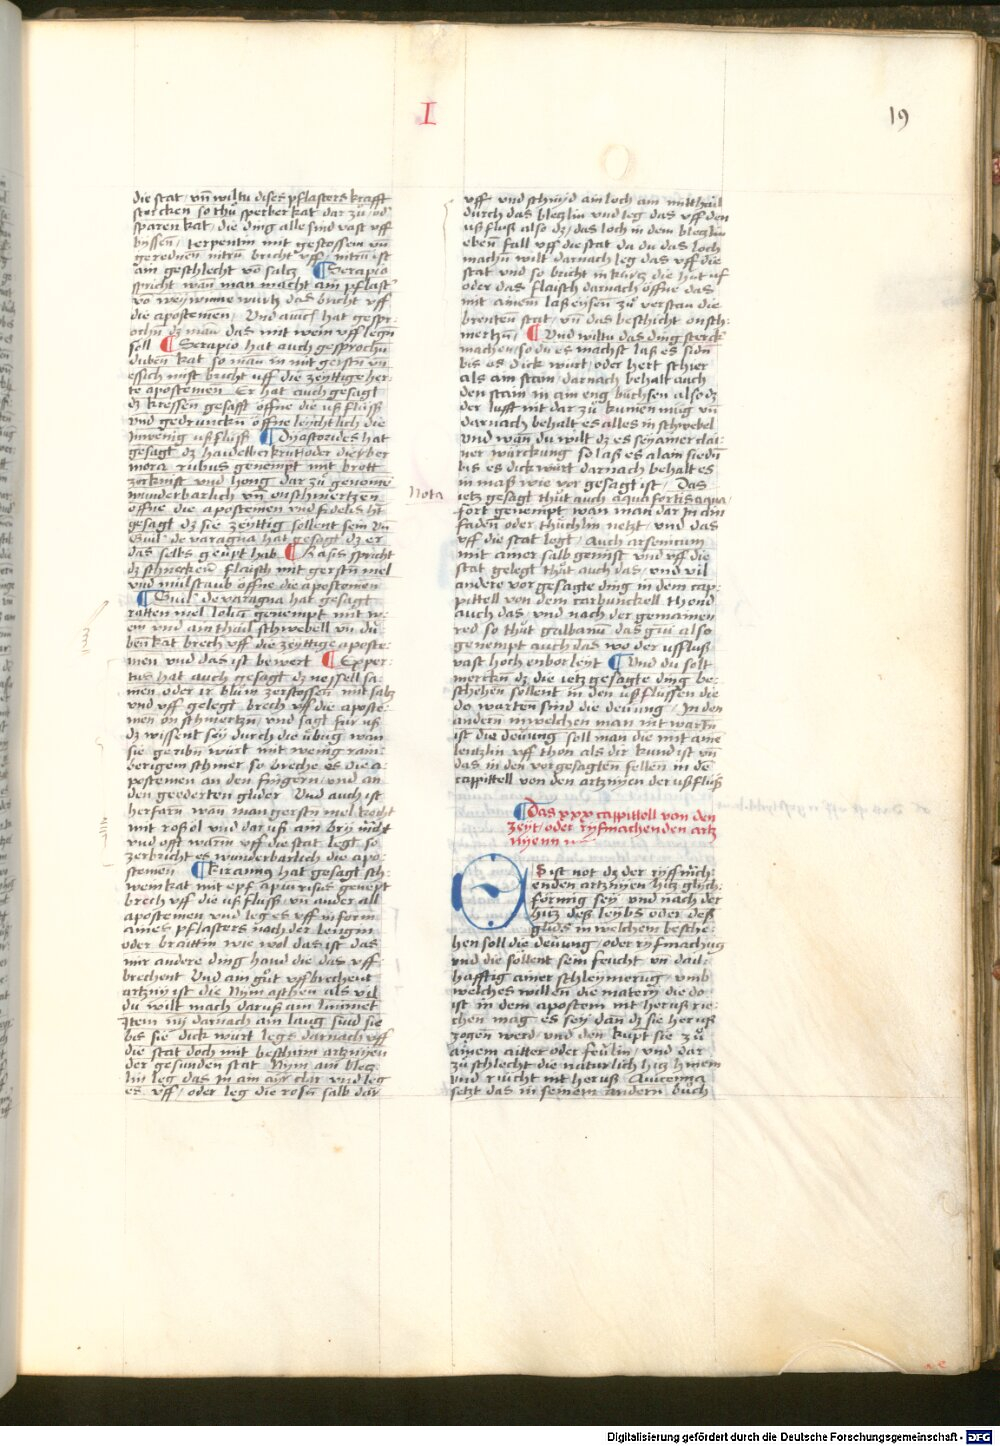 I
19
die stat / vn̄ wiltu dises pflasters krafft
stercken so thu sperber kat dar zů / od̕
sparen kat / die ding alle sind vast vff
byssen / terpentin mit gestossem vn̄
gerednen nitru bricht vff / nitru ist
ain geschlecht vō saltz ¶ Serapio
spricht wan man macht ain pflast̕
vō weyswinne wurtz das bricht vff
die apostemen / Vnd auch hat gespr-
ochn̄ dz man das mit wein vff legn̄
soll ¶ Serapio hat auch gesprochn̄
duben kat so man in mit gerstn̄ vn̄
essich mist bricht vff die zeyttige her-
te apostemen Er hat auch gesagt
dz kressen gesafft öffne die vß flüss
vnd gedrunckn̄ öffne leychtlich die
inwenig vßflüss ¶ Dyascorides hat
gesagt dz haudelberkrut oder die ber
mora rubus genempt mit brott
zerknist vnd hong dar zu genome
wunderbarlich vn̄ onschmertzen
öffne die apostemen vnd fidelis ht
gesagt dz sie zeyttig sollent sein vn̄
Guil̕ de varagna hat gesagt dz er
das selbs geupt hab ¶ Rasis spricht
dz schnecken flaisch mit gerstn̄ mel
vnd mülstaub öffne die apostemen
¶ Guil̕ de varagna hat gesagt
ratten mel loliū genempt mit we-
in vnd ain thail schwebell vn̄ du
ben kat brech vff die zeyttige aposte-
men vnd das ist bewert ¶ Exper-
tus hat auch gesagt dz nessell sa-
men oder ir blum zerstossen mit saltz
vnd vff gelegt brech vff die aposte-
men on schmertzn̄ / vnd sagt für uß
dz wissent sey durch die übug wan
sie geribn̄ würt mit wenig ram-
berigem schmer so breche es die a-
postemen an den fingern / vnd an
den geederten glider Vnd auch ist
herfarn̄ wan man gerstn̄ mel kocht
mit roß öl vnd dar uß ain brÿ mcht
vnd offt warm vff die stat legt so
zerbricht es wunderbarlich die apo-
stemen ¶ Kirannus hat gesagt sch-
wein kat mit epf apiu risus geuept
brech vff die uß flüss vn̄ ander all
apostemen vnd leg es vff in form
aines pflasters nach der lengin
oder braittin wie wol das ist das
mir andere ding hand die das vff-
brechent Vnd ain gůt vffbrechent
artznÿ ist die Nym aschen als vil
du wilt mach daruß ain
Item nÿ darnach ain laug sud sie
bis sie dick wurt legs darnach vff
die stat doch mit beschirm artznyen
der gesunden stat Nym ain bletz-
lin leg das in ain aÿr clar vnd leg
es vff / oder leg die rosn̄ salb dar
Nota
vff vnd schnÿd ain loch am mitthail
durch das bletzlin vnd leg das vff den
uß fluß also dz / das loch in dem bletzlin
eben fall vff die stat da du das loch
machn̄ wilt darnach leg das vff die
stat vnd so bricht in kürtz die hut uf
oder das flaisch darnach öffne das
mit ainem laß eysen zů verstan die
brenten stat / vn̄ das beschicht onsch-
mertzn̄ / ¶ Vnd wiltu das ding sterck̕
machen / so du es machst laß es sidn̄
bis es dick würt / oder hert schier
als ain stain / darnach behalt auch
den stain in ain eng büchsen also dz
der lufft nit dar zu kumen mug vn̄
darnach behalt es alles in schwebel
Vnd wan du wilt dz es seÿ ainer clai-
ner würckung so laß es alain siedn̄
bis es dick würt darnach behalt es
in maß wie vor gesagt ist / Das
ietz gesagt thůt auch aqua fortis aqua
fort genempt wan man dar in ain
faden oder thüchlin netzt / vnd das
vff die stat legt / Auch arsenicum
mit ainer salb gemist vnd vff die
stat gelegt thůt auch das / vnd vil
andere vor gesagte ding in dem cap-
pittell von dem carbunckell thond
auch das / vnd nach der gemainen
red so thůt galbanu das gūi also
genempt auch das wo der ußfluß
vast hoch enbor leyt ¶ Vnd du solt
mercken dz die ietz gesagte ding be-
schehen sollent in den ußflüssen die
do warten sind die deüung / In den
andern in welchen man nit wartn̄
ist die deüung soll man die mit aine
leutzlin vff thon als dir kund ist vn̄
das in den vorgesagten fellen in de
cappittell von den artznien der ußflüß
¶ Das xxx cappittell von den
zeyt / oder ryfmachenden artz
nyenn
ES ist not dz der ryff mch-
enden artznien hitz glich-
förmig sey vnd nach der
hitz deß leybs oder deß
glids in welchem besche-
hen soll die deüung / oder ryfmachug
vnd die söllent sein feücht vn̄ dail-
hafftig ainer schleymerug / vmb
welches willen die matery die do
ist in dem apostem nit heruß rie-
chen mag / es sey dan dz sie heruß
zogen werd / vnd den kupt sie zů
ainem aitter oder feülin / vnd dar
zů schlecht die natürlich hitz hinein
vnd rücht nit heruß Auicenna
setzt das in seinem andern bůch
Digitalisierung gefördert durch die Deutsche Forschungsgemeinschaft - DFG